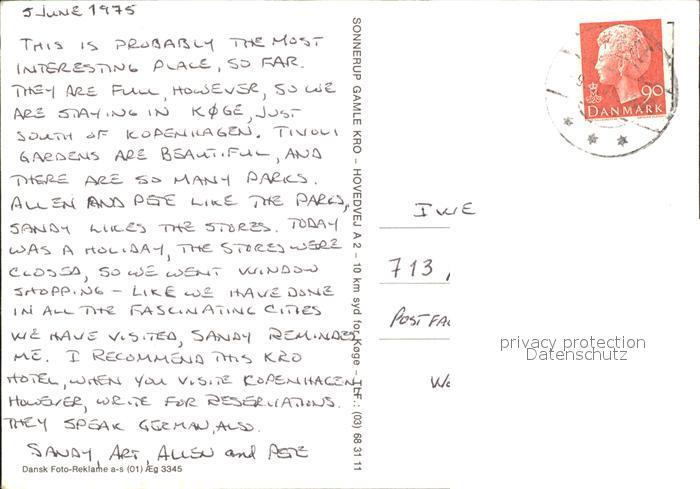 5 JUNE 1975
THIS IS PROBABLY THE MOST
INTERESTING PLACE, SO FAR.
THEY ARE FULL, HOWEVER, SO WE
ARE STAYING IN KØGE, JUST
SOUTH OF KOPENHAGEN. TIVOLI
GARDENS ARE BEAUTIFUL, AND
THERE ARE SO MANY PARKS.
ALLEN AND PETE LIKE THE PARKS,
SANDY LIKES THE STORES. TODAY
WAS A HOLIDAY, THE STORES WERE
CLOSED, SO WE WENT WINDOW
SHOPPING - LIKE WE HAVE DONE
IN ALL THE FASCINATING CITIES
WE HAVE VISITED, SANDY REMINDES
ME. I RECOMMEND THIS KRO
HOTEL, WHEN YOU VISIT KOPENHAGEN.
HOWEVER, WRITE FOR RESERVATIONS.
THEY SPEAK GERMAN, ALSO.
SANDY, ART, ALLEN and PETE
Dansk Foto-Reklame a-s (01) Æg 3345
SONNERUP GAMLE KRO - HOVEDVEJ A 2 - 10 km syd for Køge - TLF.: (03) 68 31 11
90
DANMARK
713,
POSTFAC
privacy protection
Datenschutz